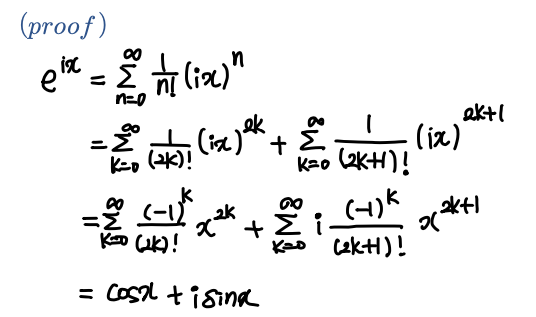 (proof)
e^{ix} = \sum_{n=0}^{\infty} \frac{1}{n!} (ix)^n
= \sum_{k=0}^{\infty} \frac{1}{(2k)!} (ix)^{2k} + \sum_{k=0}^{\infty} \frac{1}{(2k+1)!} (ix)^{2k+1}
= \sum_{k=0}^{\infty} \frac{(-1)^k}{(2k)!} x^{2k} + \sum_{k=0}^{\infty} i \frac{(-1)^k}{(2k+1)!} x^{2k+1}
= cosx + i sinx